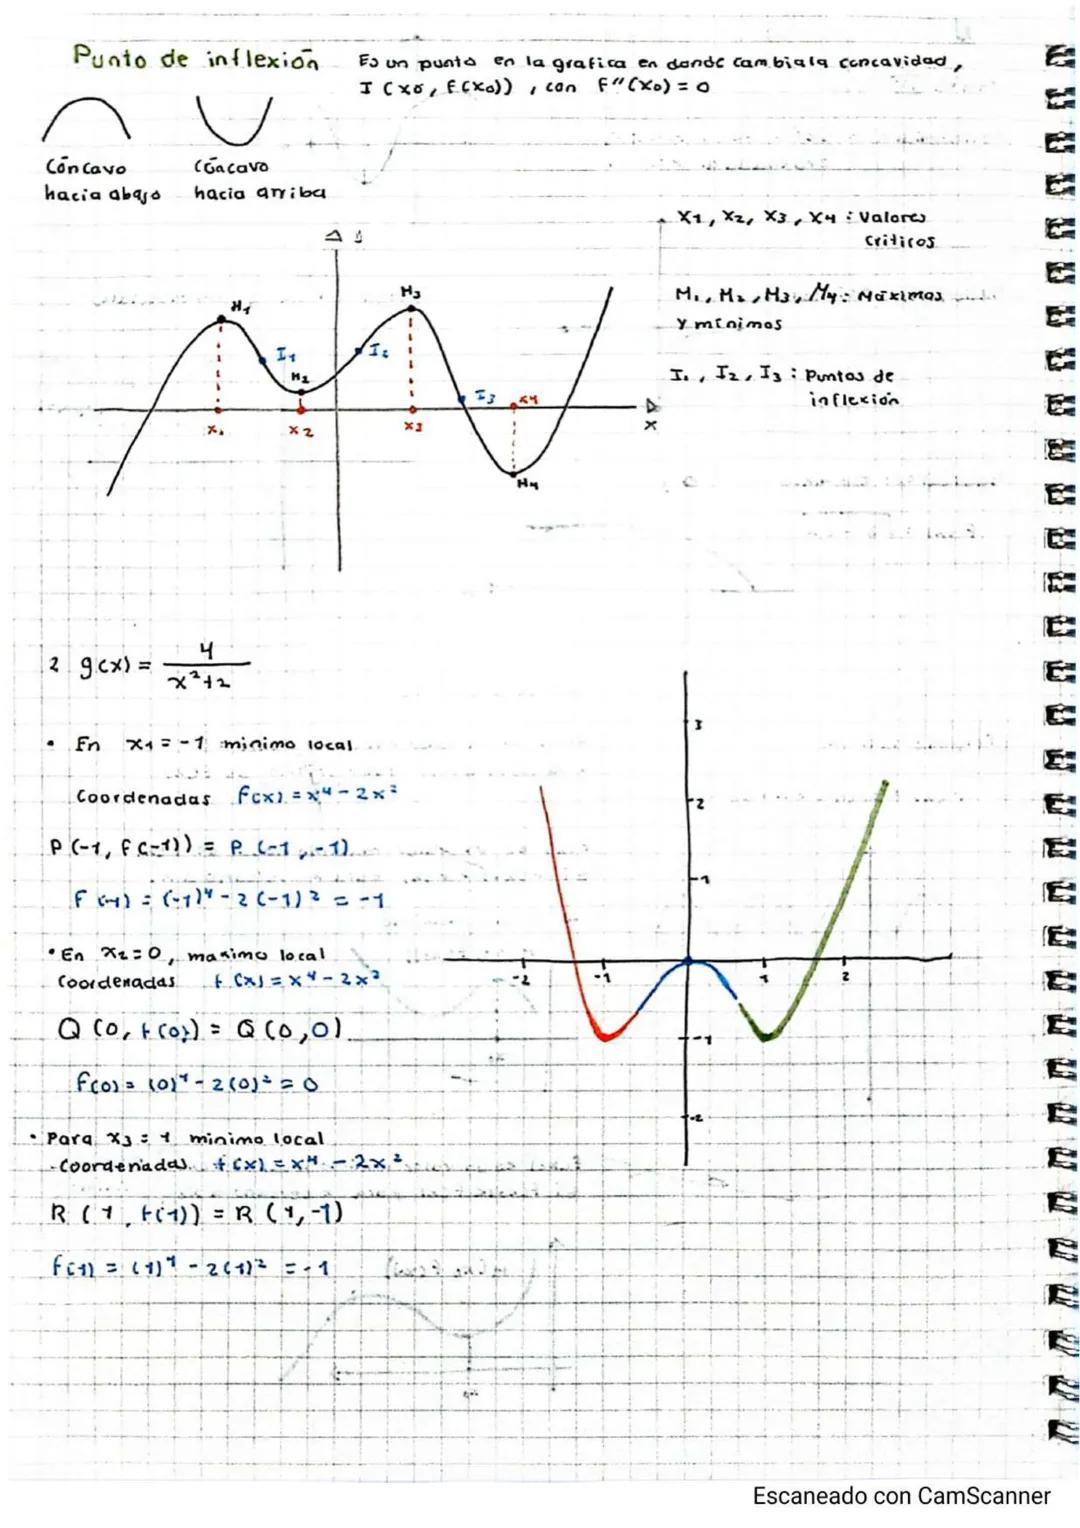 Punto de inflexión
Es un punto en la grafica en donde cambia la concavidad,
I (x₀, f(x₀)), con f''(x₀) = 0
Cóncavo
hacia abajo
Cóncavo
hacia arriba
x₁, x₂, x₃, x₄ : Valores
Criticos
M₁, M₂, M₃, M₄ : Máximos
y mínimos
I₁, I₂, I₃ : Puntos de
inflexión
y
M₁
I₁
M₂
I₂
M₃
I₃
x₄
x₁
x₂
x₃
x
M₄
2 g(x) = 4/(x²+2)
• En x₁ = -1 minimo local
Coordenadas f(x) = x⁴ - 2x²
P (-1, f(-1)) = P (-1, -1)
f(-1) = (-1)⁴ - 2(-1)² = -1
• En x₂ = 0, maximo local
Coordenadas f(x) = x⁴ - 2x²
Q (0, f(0)) = Q (0,0)
f(0) = (0)⁴ - 2(0)² = 0
• Para x₃ = 1 minimo local
- Coordenadas f(x) = x⁴ - 2x²
R (1, f(1)) = R (1, -1)
f(1) = (1)⁴ - 2(1)² = -1
3
2
1
-2
-1
1
2
-1
-2
Escaneado con CamScanner